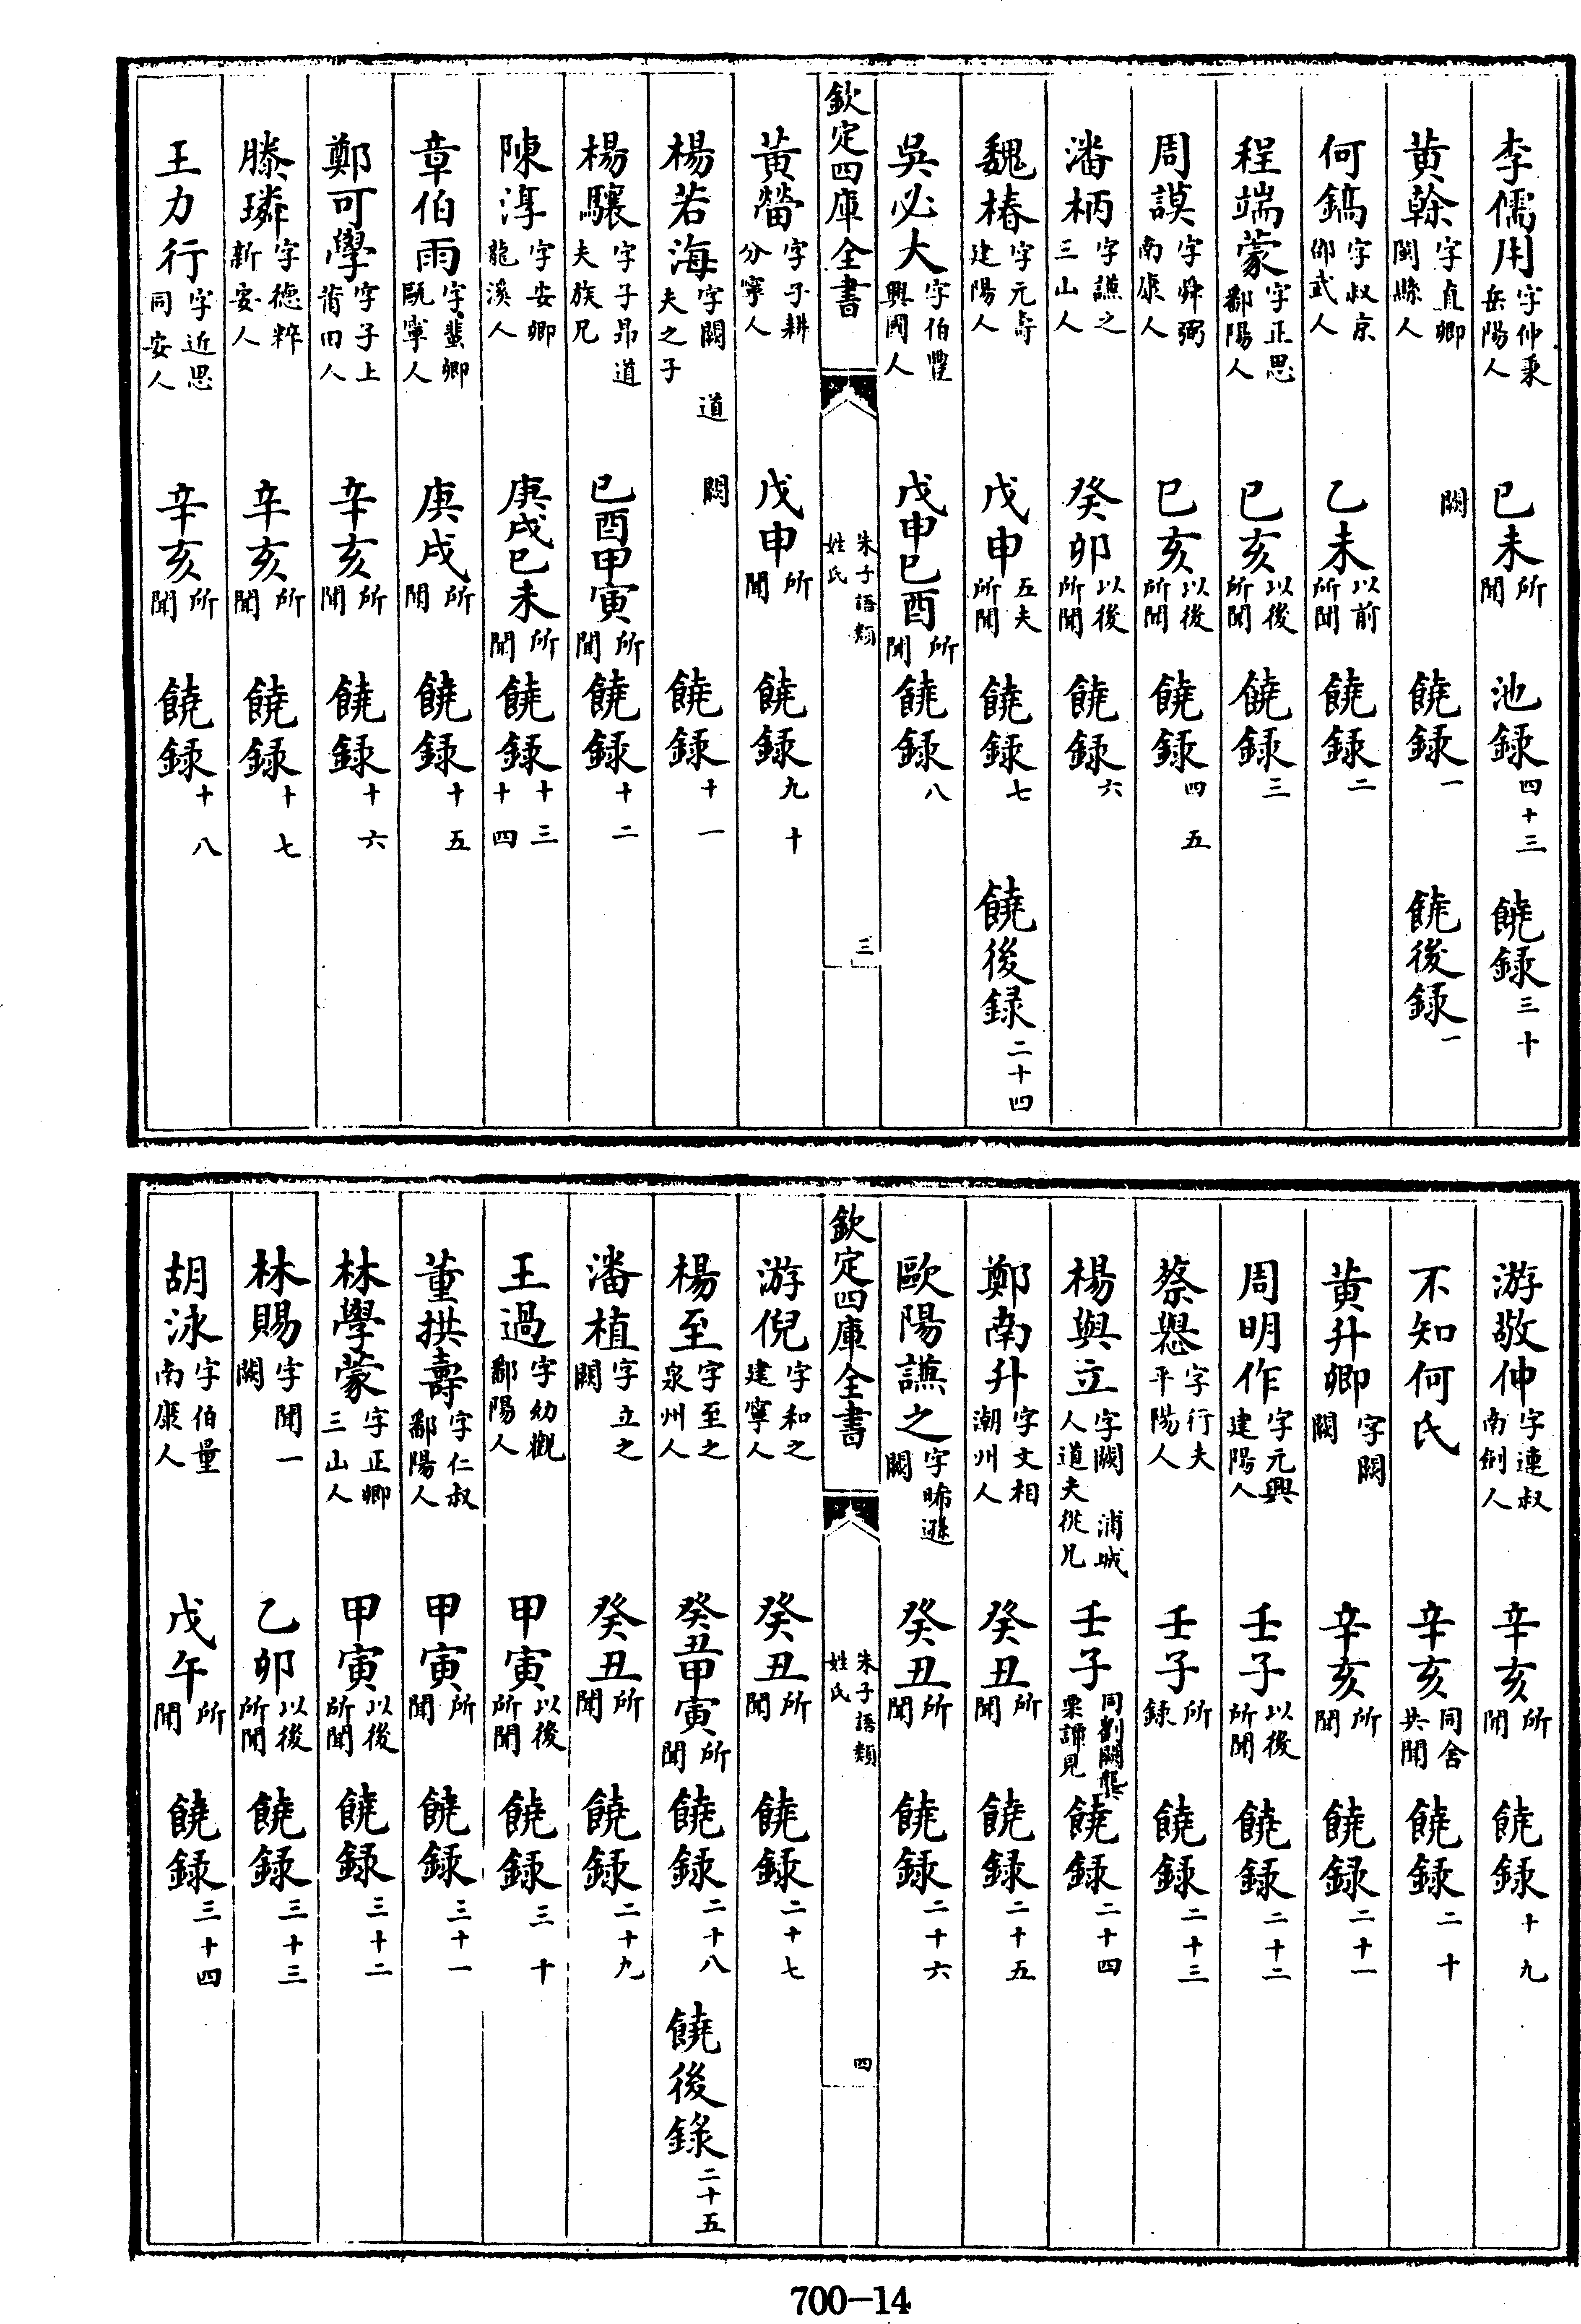 李儒用字仲秉岳陽人 已未所聞 池録四十三 饒録三十
黄榦字直卿閩縣人 闕 饒録一 饒後録一
何鎬字叔京邵武人 乙未以前所聞 饒録二
程端蒙字正思鄱陽人 已亥以後所聞 饒録三
周謨字舜弼南康人 已亥以後所聞 饒録四五
潘柄字謙之三山人 癸卯以後所聞 饒録六
魏椿字元壽建陽人 戊申五夫所聞 饒録七 饒後録二十四
吳必大字伯豐興國人 戊申已酉所聞 饒録八
欽定四庫全書 朱子語類姓氏 三
黃㽦字子耕分寧人 戊申所聞 饒録九十
楊若海字闕道夫之子 闕 饒録十一
楊驤字子昂道夫族兄 已酉甲寅所聞 饒録十二
陳淳字安卿龍溪人 庚戌已未所聞 饒録十三十四
章伯雨字蜚卿甌寧人 庚戌所聞 饒録十五
鄭可學字子上莆田人 辛亥所聞 饒録十六
滕璘字德粹新安人 辛亥所聞 饒録十七
王力行字近思同安人 辛亥所聞 饒録十八
游敬仲字連叔南劍人 辛亥所聞 饒録十九
不知何氏 辛亥同舍共聞 饒録二十
黄升卿字闕闕 辛亥所聞 饒録二十一
周明作字元興建陽人 壬子以後所聞 饒録二十二
蔡㽦字行夫平陽人 壬子所録 饒録二十三
楊與立字闕浦城人道夫從兄 壬子同劉闕龔栗譚見 饒録二十四
鄭南升字文相潮州人 癸丑所聞 饒録二十五
歐陽謙之字晞遜闕 癸丑所聞 饒録二十六
欽定四庫全書 朱子語類姓氏 四
游倪字和之建寧人 癸丑所聞 饒録二十七
楊至字至之泉州人 癸丑甲寅所聞 饒録二十八 饒後録二十五
潘植字立之闕 癸丑所聞 饒録二十九
王過字幼觀鄱陽人 甲寅以後所聞 饒録三十
董拱壽字仁叔鄱陽人 甲寅所聞 饒録三十一
林學蒙字正卿三山人 甲寅以後所聞 饒録三十二
林賜字聞一闕 乙卯以後所聞 饒録三十三
胡泳字伯量南康人 戊午所聞 饒録三十四
700-14